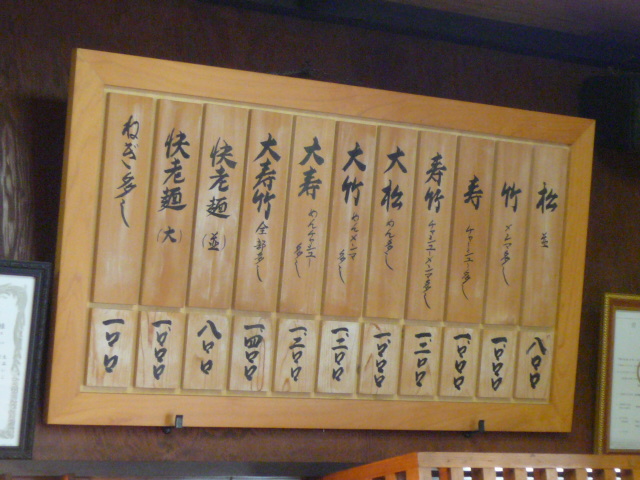 松 並
八〇〇
竹 メンマ多し
一、〇〇〇
寿 チャーシュー多し
一、〇〇〇
寿竹 チャーシューメンマ多し
一、二〇〇
大松 めん多し
一、〇〇〇
大竹 めんメンマ多し
一、二〇〇
大寿 めんチャーシュー多し
一、二〇〇
大寿竹 全部多し
一、四〇〇
快老麺(並)
八〇〇
快老麺(大)
一、〇〇〇
ねぎ多し
一〇〇